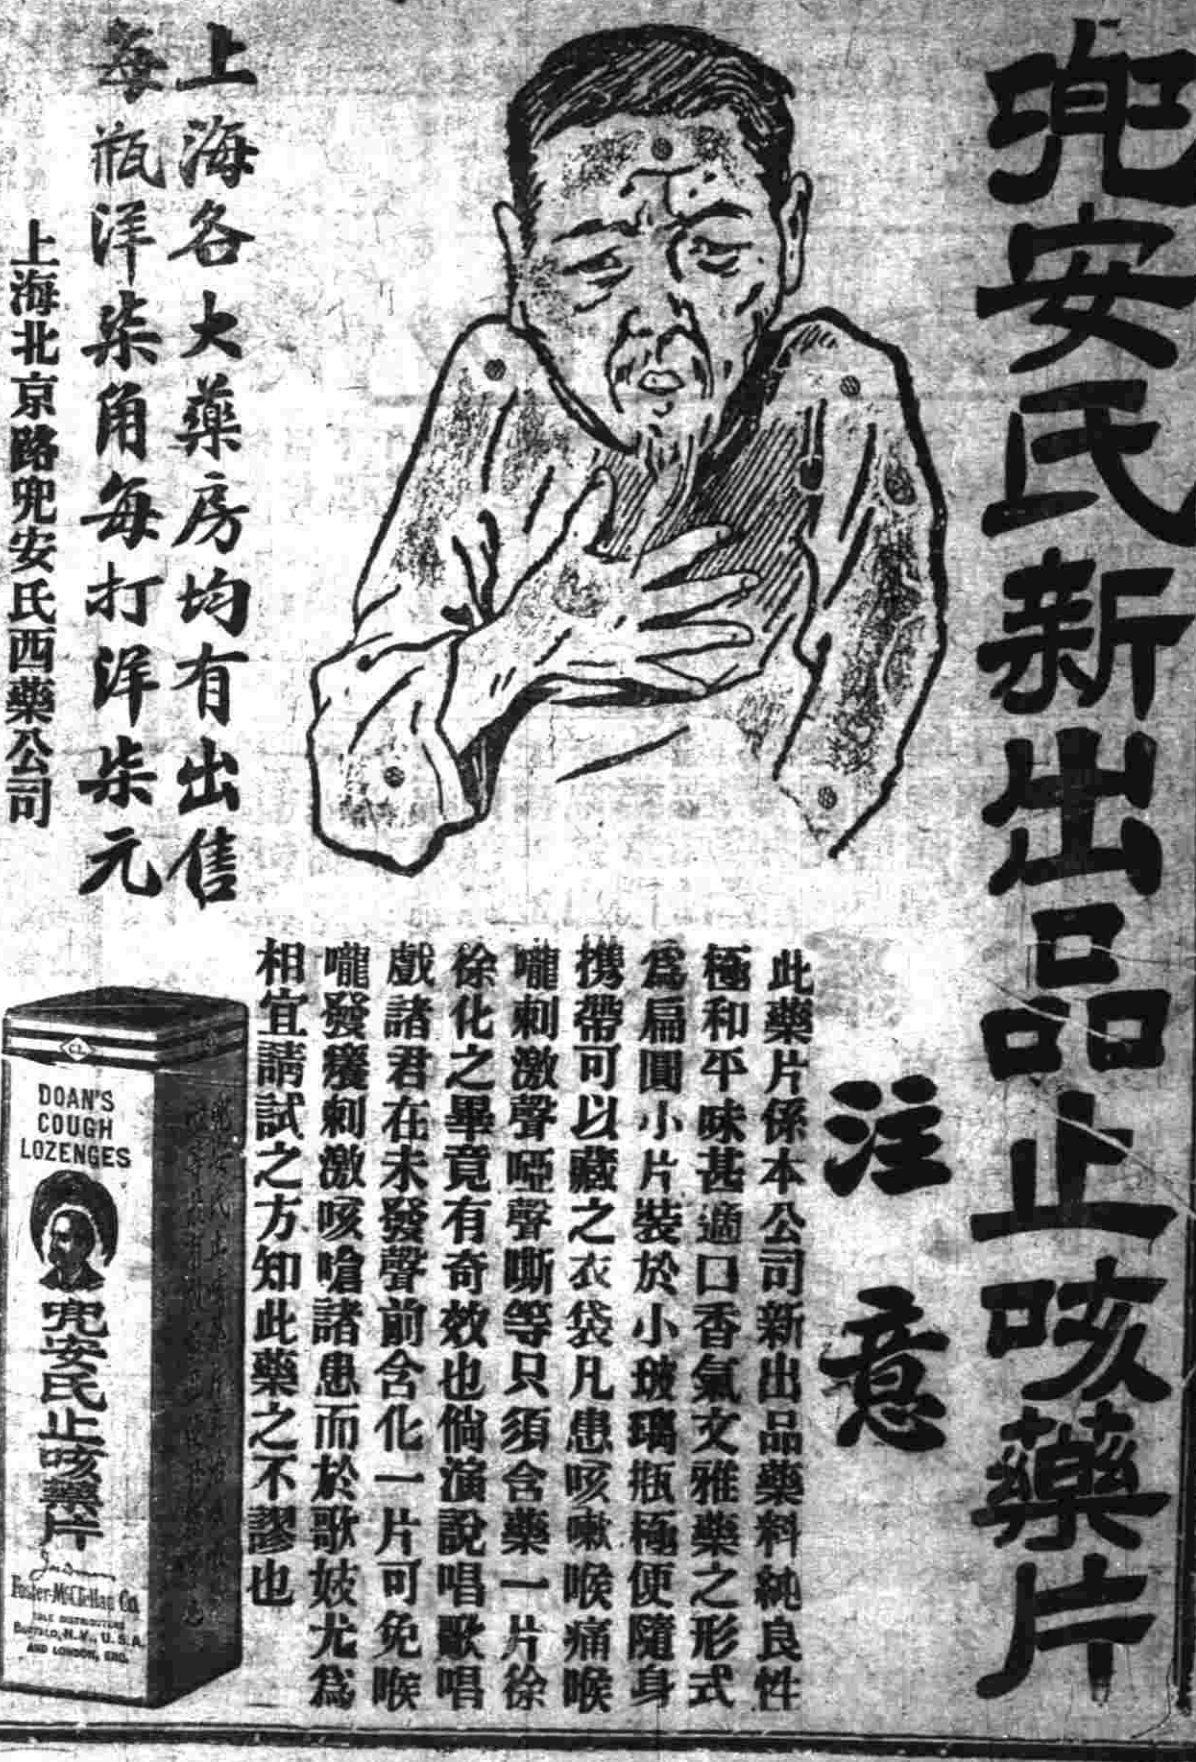 兜安氏新出品止咳藥片
注意
此藥片係本公司新出品藥料純良性
極和平味甚適口香氣文雅藥之形式
爲扁圓小片裝於小玻璃瓶極便隨身
携帶可以藏之衣袋凡患咳嗽喉痛喉
嚨刺激聲啞聲嘶等只須含藥一片徐
徐化之畢竟有奇效也倘演說唱歌唱
戲諸君在未發聲前含化一片可免喉
嚨發癢刺激咳嗆諸患而於歌妓尤爲
相宜請試之方知此藥之不謬也
上海各大藥房均有出售
每瓶洋柒角每打洋柒元
上海北京路兜安氏西藥公司
DOAN'S
COUGH
LOZENGES
兜安氏止咳藥片
Foster-McClellan Co.
SOLE DISTRIBUTORS
BUFFALO, N.Y., U.S.A.
AND LONDON, ENG.